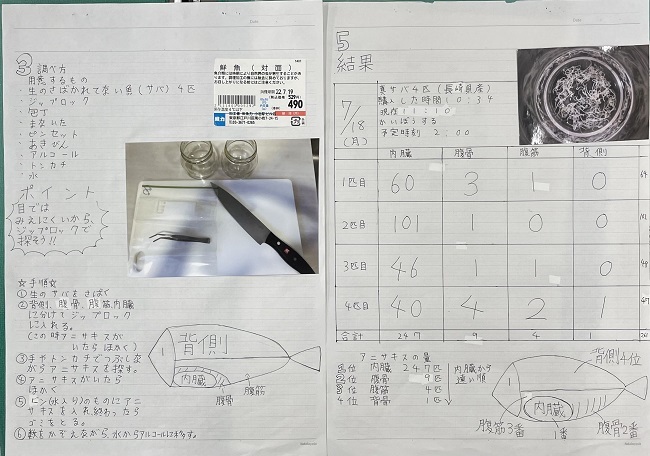 ③ 調べ方
用意するもの
生のさばかれてない魚(サバ) 4匹
ジップロック
包丁
まないた
ピンセット
あきびん
アルコール
トンカチ
水
鮮魚(対面)
22.7.19
490
ポイント
目では
みえにくいから、
ジップロックで
探そう!!
☆手順☆
①生のサバをさばく
②背側、腹骨、腹筋、内臓
に分けてジップロック
に入れる。
(この時アニサキスが
いたらほかく)
③手やトンカチでつぶしな
がらアニサキスを探す。
④アニサキスがいたら
ほかく
⑤ビン(水入り)のものにアニ
サキスを入れ終わったら
ゴミをとる。
⑥数をかぞえながら、水からアルコールに移す。
1
背側
内臓
腹筋
腹骨
5
結果
7/18
(月)
真サバ4匹(長崎県産)
購入した時間10:34
現在11:10
かいぼうする
予定時刻 2:00
内臓 腹骨 腹筋 背側
1匹目 60 3 1 0 64
2匹目 101 1 0 0
3匹目 46 1 1 0 48
4匹目 40 4 2 1 47
合計 247 9 4 1
アニサキスの量
1位 内臓 247匹
2位 腹骨 9匹
3位 腹筋 4匹
4位 背骨 1匹
内臓から
遠い順
背側4位
1
内臓
腹筋3番
1番
腹骨2番